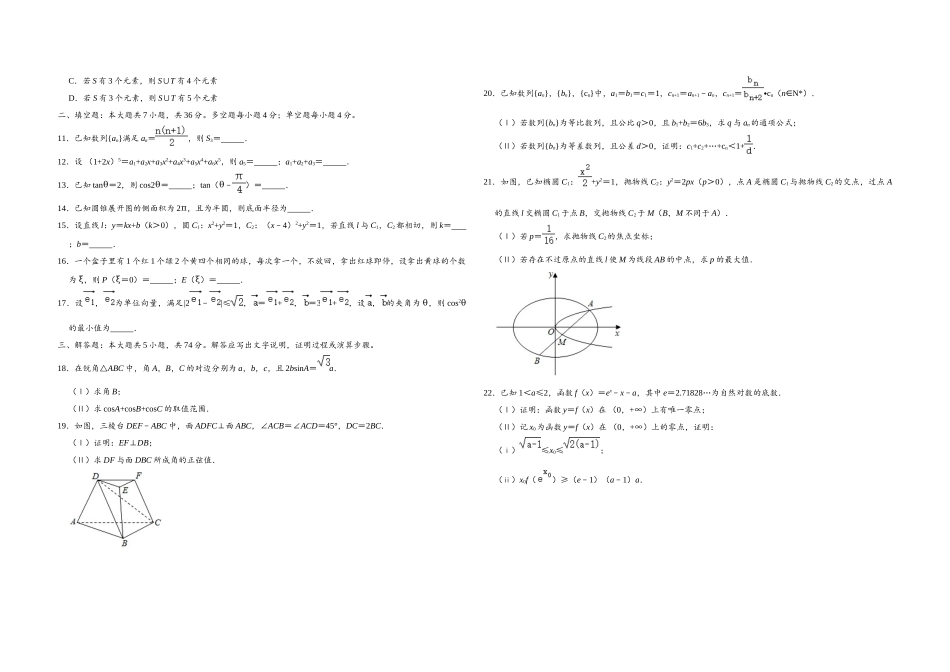 C．若 S 有 3 个元素，则 S∪T 有 4 个元素
D．若 S 有 3 个元素，则 S∪T 有 5 个元素
二、填空题：本大题共 7 小题，共 36 分。多空题每小题 4 分；单空题每小题 4 分。
11．已知数列{aₙ}满足 aₙ＝n(n+1)/2，则 S₃＝_____．
12．设（1+2x）⁵＝a₁+a₂x+a₃x²+a₄x³+a₅x⁴+a₆x⁵，则 a₅＝_____；a₁+a₂+a₃＝_____．
13．已知 tanθ＝2，则 cos2θ＝_____；tan（θ﹣π/4）＝_____．
14．已知圆锥展开图的侧面积为 2π，且为半圆，则底面半径为_____．
15．设直线 l：y＝kx+b（k＞0），圆 C₁：x²+y²＝1，C₂：（x﹣4）²+y²＝1，若直线 l 与 C₁，C₂ 都相切，则 k＝___
；b＝_____．
16．一个盒子里有 1 个红 1 个绿 2 个黄四个相同的球，每次拿一个，不放回，拿出红球即停，设拿出黄球的个数
为 ξ，则 P（ξ＝0）＝_____；E（ξ）＝_____．
17．设 e₁→，e₂→为单位向量，满足|2e₁→﹣e₂→|≤√2，a→＝e₁→+e₂→，b→＝3e₁→+e₂→，设a→，b→的夹角为 θ，则 cos²θ
的最小值为_____．
三、解答题：本大题共 5 小题，共 74 分。解答应写出文字说明，证明过程或演算步骤。
18．在锐角△ABC 中，角 A，B，C 的对边分别为 a，b，c，且 2bsinA＝√3a．
（Ⅰ）求角 B；
（Ⅱ）求 cosA+cosB+cosC 的取值范围．
19．如图，三棱台 DEF﹣ABC 中，面 ADFC⊥面 ABC，∠ACB＝∠ACD＝45°，DC＝2BC．
（Ⅰ）证明：EF⊥DB；
（Ⅱ）求 DF 与面 DBC 所成角的正弦值．
D
F
E
A
C
B
20．已知数列{aₙ}，{bₙ}，{cₙ}中，a₁＝b₁＝c₁＝1，cₙ₊₁＝aₙ₊₁﹣aₙ，cₙ₊₁＝bₙ/bₙ₊₂•cₙ（n∈N*）．
（Ⅰ）若数列{bₙ}为等比数列，且公比 q＞0，且 b₁+b₂＝6b₃，求 q 与 aₙ 的通项公式；
（Ⅱ）若数列{bₙ}为等差数列，且公差 d＞0，证明：c₁+c₂+…+cₙ＜1+1/d．
21．如图，已知椭圆 C₁：x²/2+y²＝1，抛物线 C₂：y²＝2px（p＞0），点 A 是椭圆 C₁ 与抛物线 C₂ 的交点，过点 A
的直线 l 交椭圆 C₁ 于点 B，交抛物线 C₂ 于 M（B，M 不同于 A）．
（Ⅰ）若 p＝1/16，求抛物线 C₂ 的焦点坐标；
（Ⅱ）若存在不过原点的直线 l 使 M 为线段 AB 的中点，求 p 的最大值．
y
A
O
x
M
B
22．已知 1＜a≤2，函数 f（x）＝eˣ﹣x﹣a，其中 e＝2.71828…为自然对数的底数．
（Ⅰ）证明：函数 y＝f（x）在（0，+∞）上有唯一零点；
（Ⅱ）记 x₀ 为函数 y＝f（x）在（0，+∞）上的零点，证明：
（ⅰ）√(a-1)≤x₀≤√(2(a-1))；
（ⅱ）x₀f（e^x₀）≥（e﹣1）（a﹣1）a．